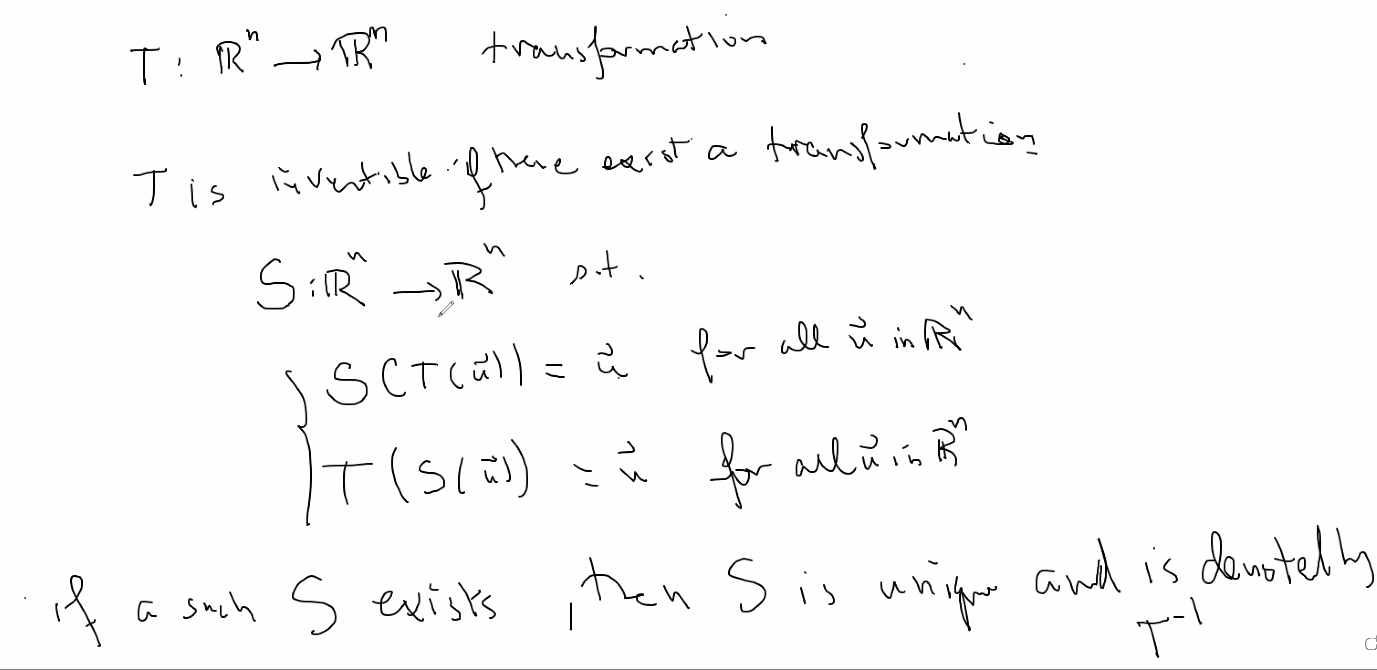 T : ℝⁿ → ℝⁿ transformation
T is invertible if there exist a transformation
S : ℝⁿ → ℝⁿ s.t.
S(T(u⃗)) = u⃗ for all u⃗ in ℝⁿ
T(S(u⃗)) = u⃗ for all u⃗ in ℝⁿ
if a such S exists, then S is unique and is denoted by
T⁻¹